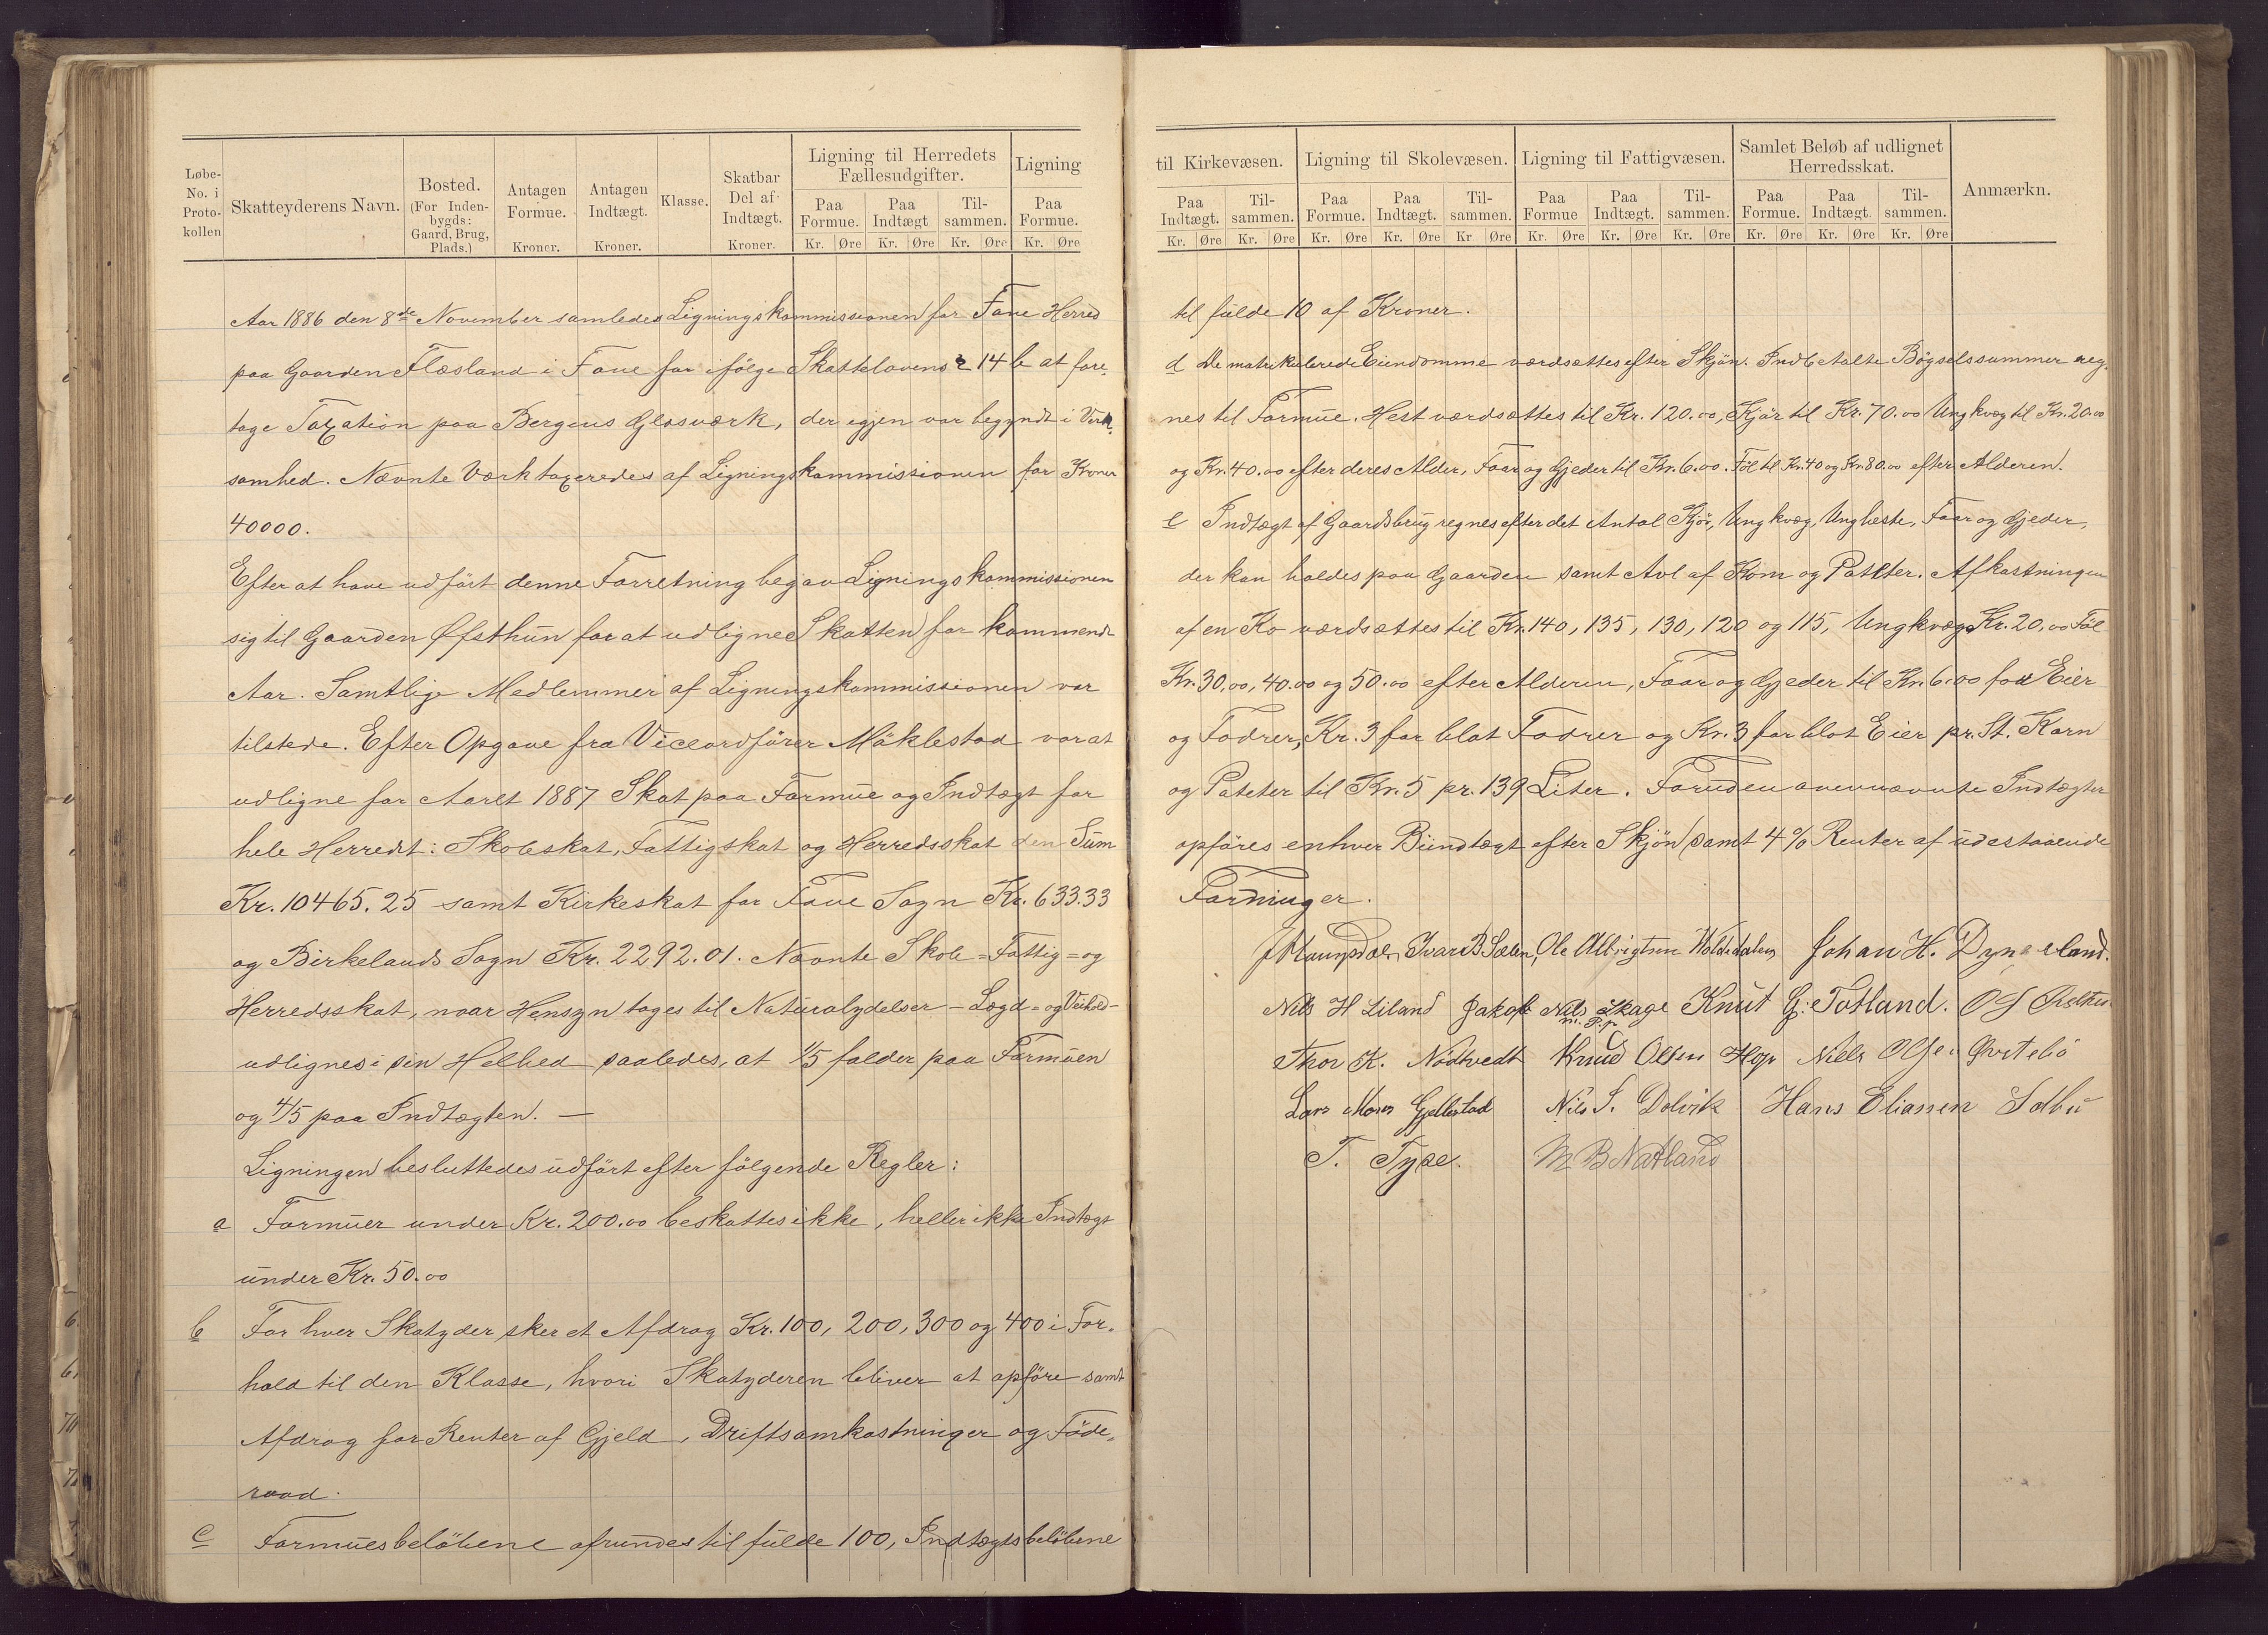 Løbe-
No. i
Proto-
kollen
Skatteyderens Navn.
Bosted.
(For Inden-
bygds:
Gaard, Brug,
Plads.)
Antagen
Formue.
Kroner.
Antagen
Indtægt.
Kroner.
Klasse.
Skatbar
Del af
Indtægt.
Kroner.
Ligning til Herredets
Fællesudgifter.
Paa
Formue.
Paa
Indtægt
Til-
sammen.
Kr. Øre Kr. Øre Kr. Øre
Ligning
Paa
Formue.
Kr. Øre
Aar 1886 den 8de November samledes Ligningskommissionen for Fane Herred
paa Gaarden Flæsland i Fane for ifølge Skattelovens § 14 b at fore-
tage Taxation paa Bergens Glasværk, der igjen var begyndt i Virk-
somhed. Nævnte Værk taxeredes af Ligningskommissionen for Kroner
40000.
Efter at have udført denne Forretning begav Ligningskommissionen
sig til Gaarden Øfsthun for at udligne Skatten for kommende
Aar. Samtlige Medlemmer af Ligningskommissionen var
tilstede. Efter Opgave fra Viceordfører Møklestad var at
udligne for Aaret 1887 Skat paa Formue og Indtægt for
hele Herredet: Skoleskat, Fattigskat og Herredsskat den Sum
Kr. 10465.25 samt Kirkeskat for Fane Sogn Kr. 633.33
og Birkelands Sogn Kr. 2292.01. Nævnte Skole- Fattig- og
Herredsskat, naar Hensyn tages til Naturalydelser - Lægd- og Veihold-
udlignes i sin Helhed saaledes, at 1/5 falder paa Formuen
og 4/5 paa Indtægten. —
Ligningen besluttedes udført efter følgende Regler:
a Formuer under Kr. 200.00 beskattes ikke, heller ikke Indtægt
under Kr. 50.00
b For hver Skatyder sker et Afdrag Kr. 100, 200, 300 og 400 i For-
hold til den Klasse, hvori Skatyderen bliver at opføre samt
Afdrag for Renter af Gjeld, Driftsomkostninger og Føde-
raad.
c Formuesbeløbene afrundes til fulde 100, Indtægtsbeløbene
til Kirkevæsen.
Paa
Indtægt.
Til-
sammen.
Kr. Øre Kr. Øre
Ligning til Skolevæsen.
Paa
Formue.
Paa
Indtægt.
Til-
sammen.
Kr. Øre Kr. Øre Kr Øre
Ligning til Fattigvæsen.
Paa
Formue
Paa
Indtægt.
Til-
sammen.
Kr. Øre Kr. Øre Kr. Øre
Samlet Beløb af udlignet
Herredsskat.
Paa
Formue.
Paa
Indtægt.
Til-
sammen.
Kr. Øre Kr. Øre Kr. Øre
Anmærkn.
til fulde 10 af Kroner.
d De matrikulerede Eiendomme værdsættes efter Skjøn. Indbetalte Bøgselssummer reg-
nes til Formue. Hest værdsættes til Kr. 120.00, Kjør til Kr. 70.00 Ungkvæg til Kr. 20.00
og Kr. 40.00 efter deres Alder, Faar og Gjeder til Kr. 6.00. Føl til Kr. 40 og Kr. 80.00 efter Alderen.
e Indtægt af Gaardsbrug regnes efter det Antal Kjør, Ungkvæg, Ungheste, Faar og Gjeder,
der kan holdes paa Gaarden samt Avl af Korn og Poteter. Afkastningen
af en Ko værdsættes til Kr. 140, 135, 130, 120 og 115, Ungkvæg Kr. 20,00 Føl
Kr. 30,00, 40.00 og 50.00 efter Alderen, Faar og Gjeder til Kr. 6.00 for Eier
og Fodrer, Kr. 3 for blot Fodrer og Kr. 3 for blot Eier pr. St. Korn
og Poteter til Kr. 5 pr. 139 Liter. Foruden ovennævnte Indtægter
opføres enhver Biindtægt efter Skjøn samt 4 % Renter af udestaaende
Fordringer.
Ivar B Sælen, Ole Albrigtsen Johan H.
Nils H Liland Jakob Nils Skage Knut G. Totland.
m. P. p.
Thor K. Nødtvedt Knud Olsen Hop Niels Olsen
Lars Gjellestad Nils S. Dolvik Hans Eliassen
T. M B Natland